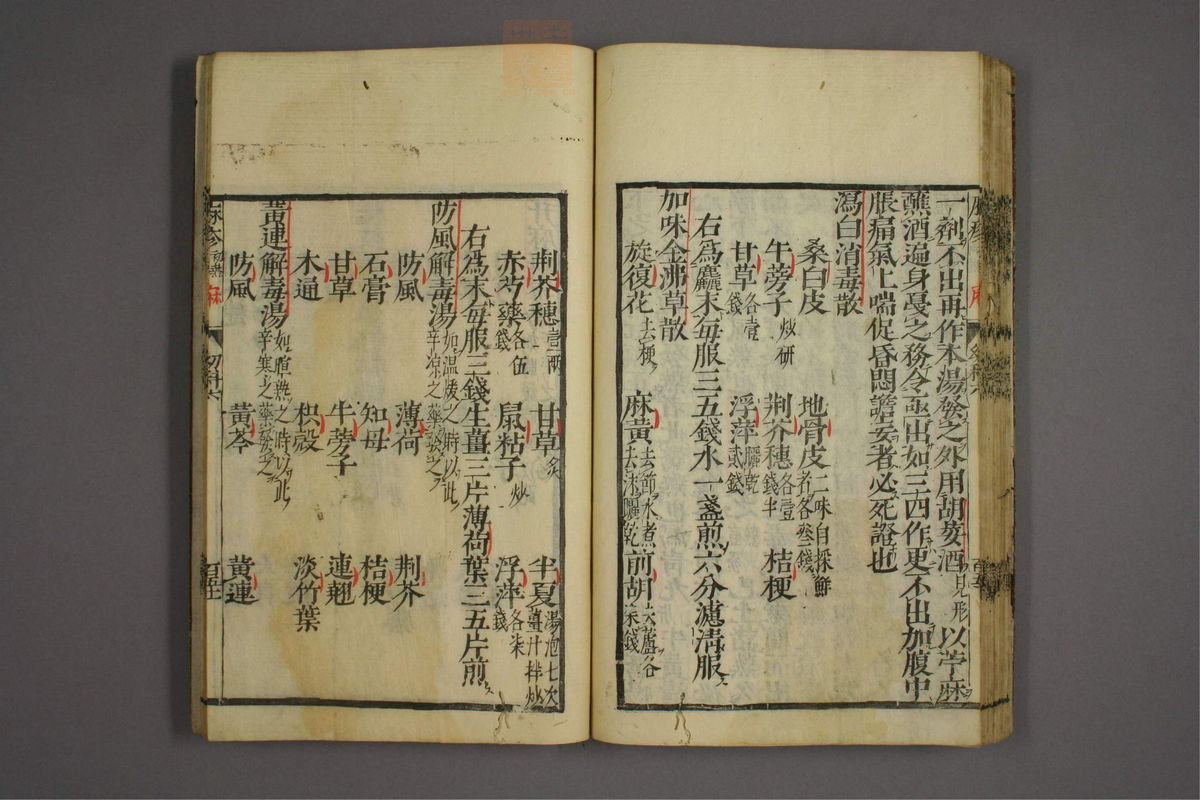 一劑不出再作本湯發之外用胡荽酒見形以苧麻
蘸酒遍身戞之務令亟出如三四作更不出加腹中
脹痛氣上喘促昏悶譫妄者必死證也
瀉白消毒散
桑白皮 地骨皮二味自採鮮者各叄錢 桔梗
牛蒡子炒研 荆芥穗各壹錢半
甘草各壹錢 浮萍曬乾貳錢
右為麤末每服三五錢水一盞煎六分濾清服
加味金沸草散
旋復花去梗 麻黃去節水煮去沫曬乾 前胡去蘆各柒錢
荆芥穗壹兩 甘草炙 半夏湯泡七次薑汁拌炒
赤芍藥各伍錢 鼠粘子炒 浮萍各柒錢
右為末每服三錢生薑三片薄荷葉三五片煎
防風解毒湯如温暖之時以此辛凉之藥發之
防風 薄荷 荆芥
石膏 知母 桔梗
甘草 牛蒡子 連翹
木通 枳殼 淡竹葉
黃連解毒湯如暄熱之時以此辛寒之藥發之
防風 黃芩 黃連